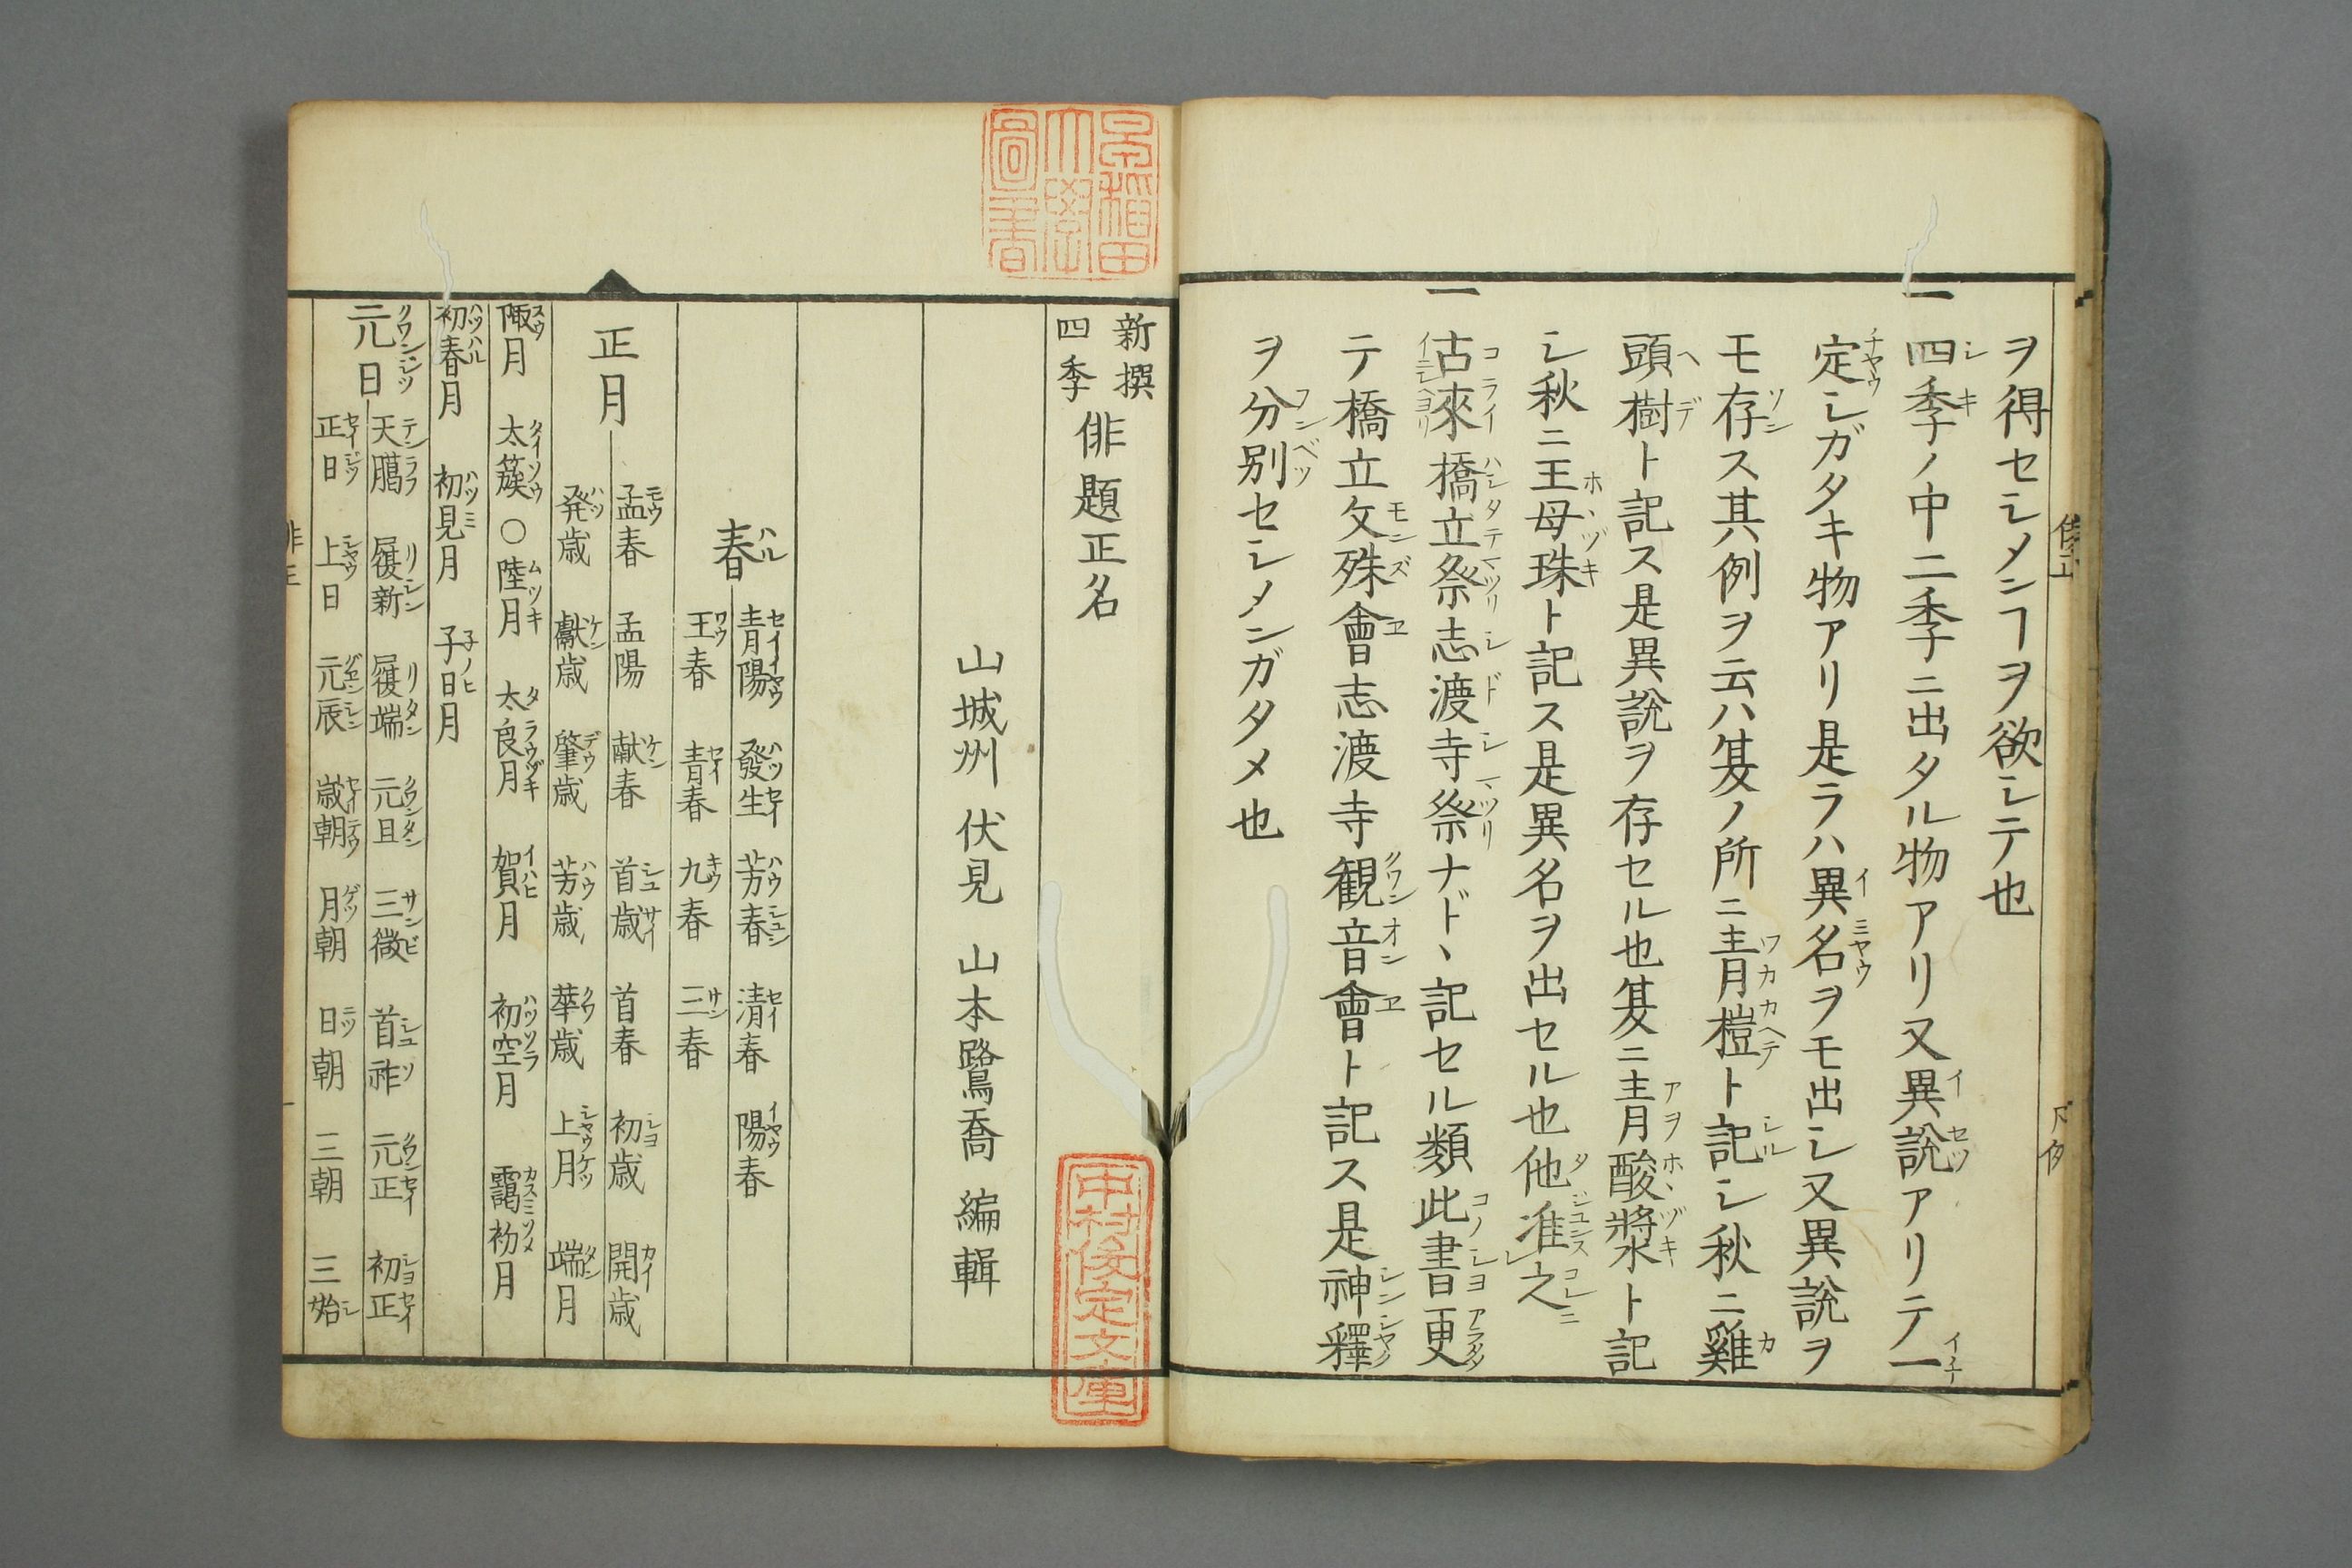 ヲ得セシメンヿヲ欲シテ也
一四季ノ中二季ニ出タル物アリ又異説アリテ一
定シガタキ物アリ是ラハ異名ヲモ出シ又異説ヲ
モ存ス其例ヲ云ハ夏ノ所ニ青榿ト記シ秋ニ雞
頭樹ト記ス是異説ヲ存セル也夏ニ青酸漿ト記
シ秋ニ王母珠ト記ス是異名ヲ出セル也他准之
一古來橋立祭志渡寺祭ナド、記セル類此書更
テ橋立文殊會志渡寺観音會ト記ス是神釋
ヲ分別セシメンガタメ也
新撰
四季
俳題正名
山城州 伏見 山本鷺喬 編輯
春
青陽 發生 芳春 清春 陽春
王春 青春 九春 三春
正月
孟春 孟陽 献春 首歳 首春 初歳 開歳
発歳 獻歳 肇歳 芳歳 華歳 上月 端月
陬月 太簇 ○陸月 太良月 賀月 初空月 靄初月
初春月 初見月 子日月
元日
天臈 履新 履端 元旦 三微 首祚 元正 初正
正日 上日 元辰 歳朝 月朝 日朝 三朝 三始
早稲田大學圖書
中村俊定文庫